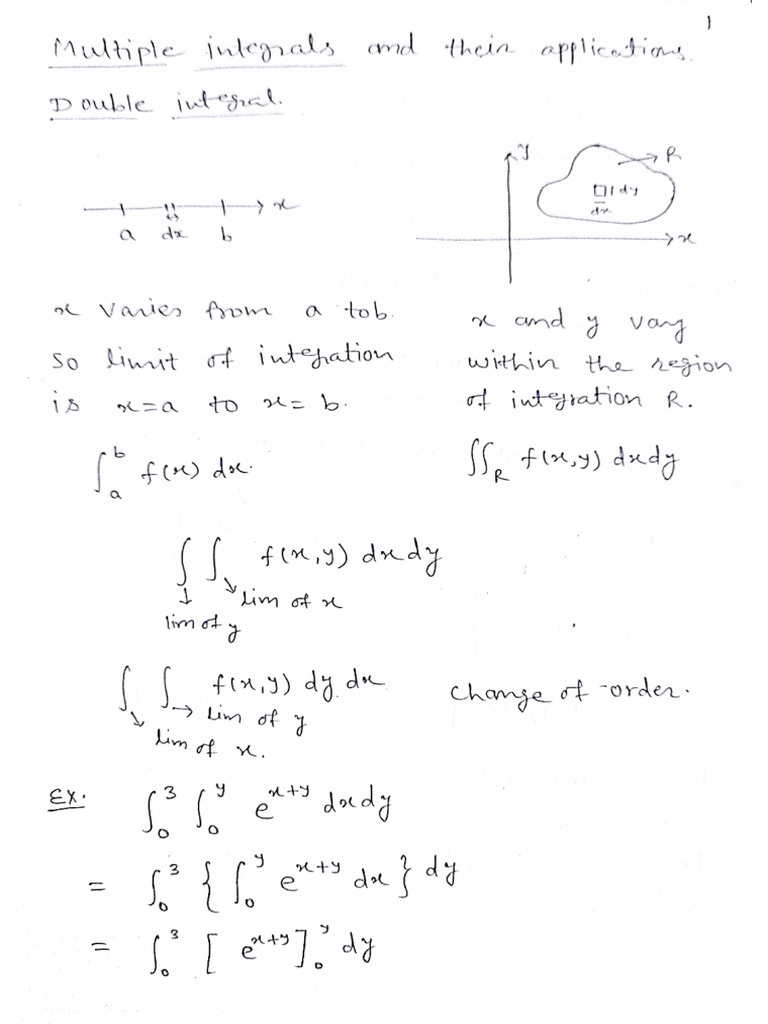 1
Multiple integrals and their applications.
Double integral.
a dx b x
y R dy dx x
x varies from a to b.
so limit of integration
is x=a to x=b.
∫_a^b f(x) dx.
x and y vary
within the region
of integration R.
∬_R f(x,y) dxdy
∫ ∫ f(x,y) dxdy
lim of x
lim of y
∫ ∫ f(x,y) dy dx change of order.
lim of y
lim of x.
Ex. ∫_0^3 ∫_0^y e^{x+y} dxdy
= ∫_0^3 { ∫_0^y e^{x+y} dx } dy
= ∫_0^3 [ e^{x+y} ]_0^y dy